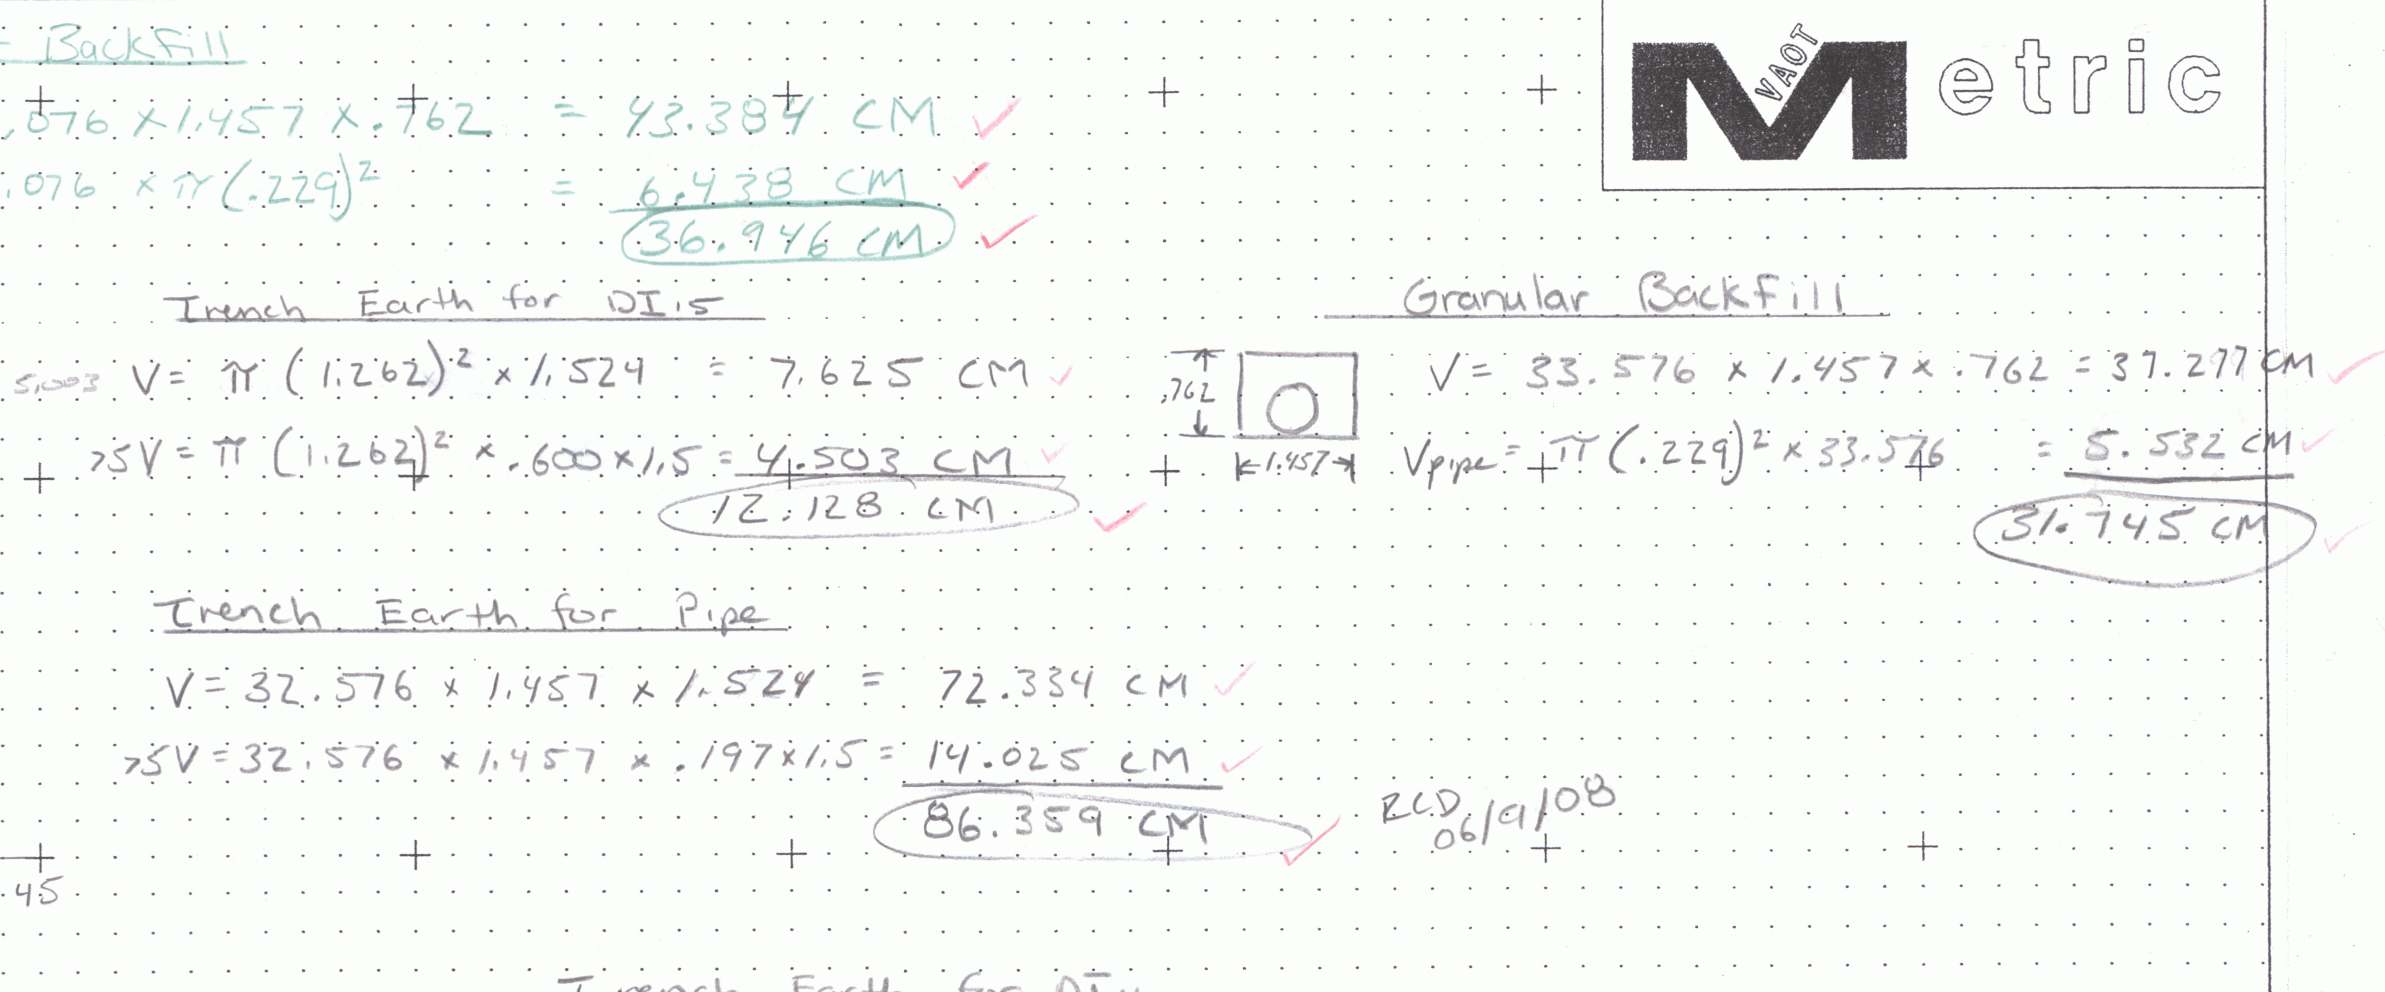 = Backfill
VAOT Metric
.076 x 1.457 x .762 = 43.384 CM
.076 x π(.229)² = 6.438 CM
36.946 CM
Trench Earth for DI.5
5.003 V = π (1.262)² x 1.524 = 7.625 CM
>5V = π (1.262)² x .600 x 1.5 = 4.503 CM
12.128 CM
Granular Backfill
.762
1.457
V = 33.576 x 1.457 x .762 = 37.277 CM
Vpipe = π (.229)² x 33.576 = 5.532 CM
31.745 CM
Trench Earth for Pipe
V = 32.576 x 1.457 x 1.524 = 72.334 CM
>5V = 32.576 x 1.457 x .197 x 1.5 = 14.025 CM
86.359 CM
RCD
06/9/08
.45
Trench Earth for